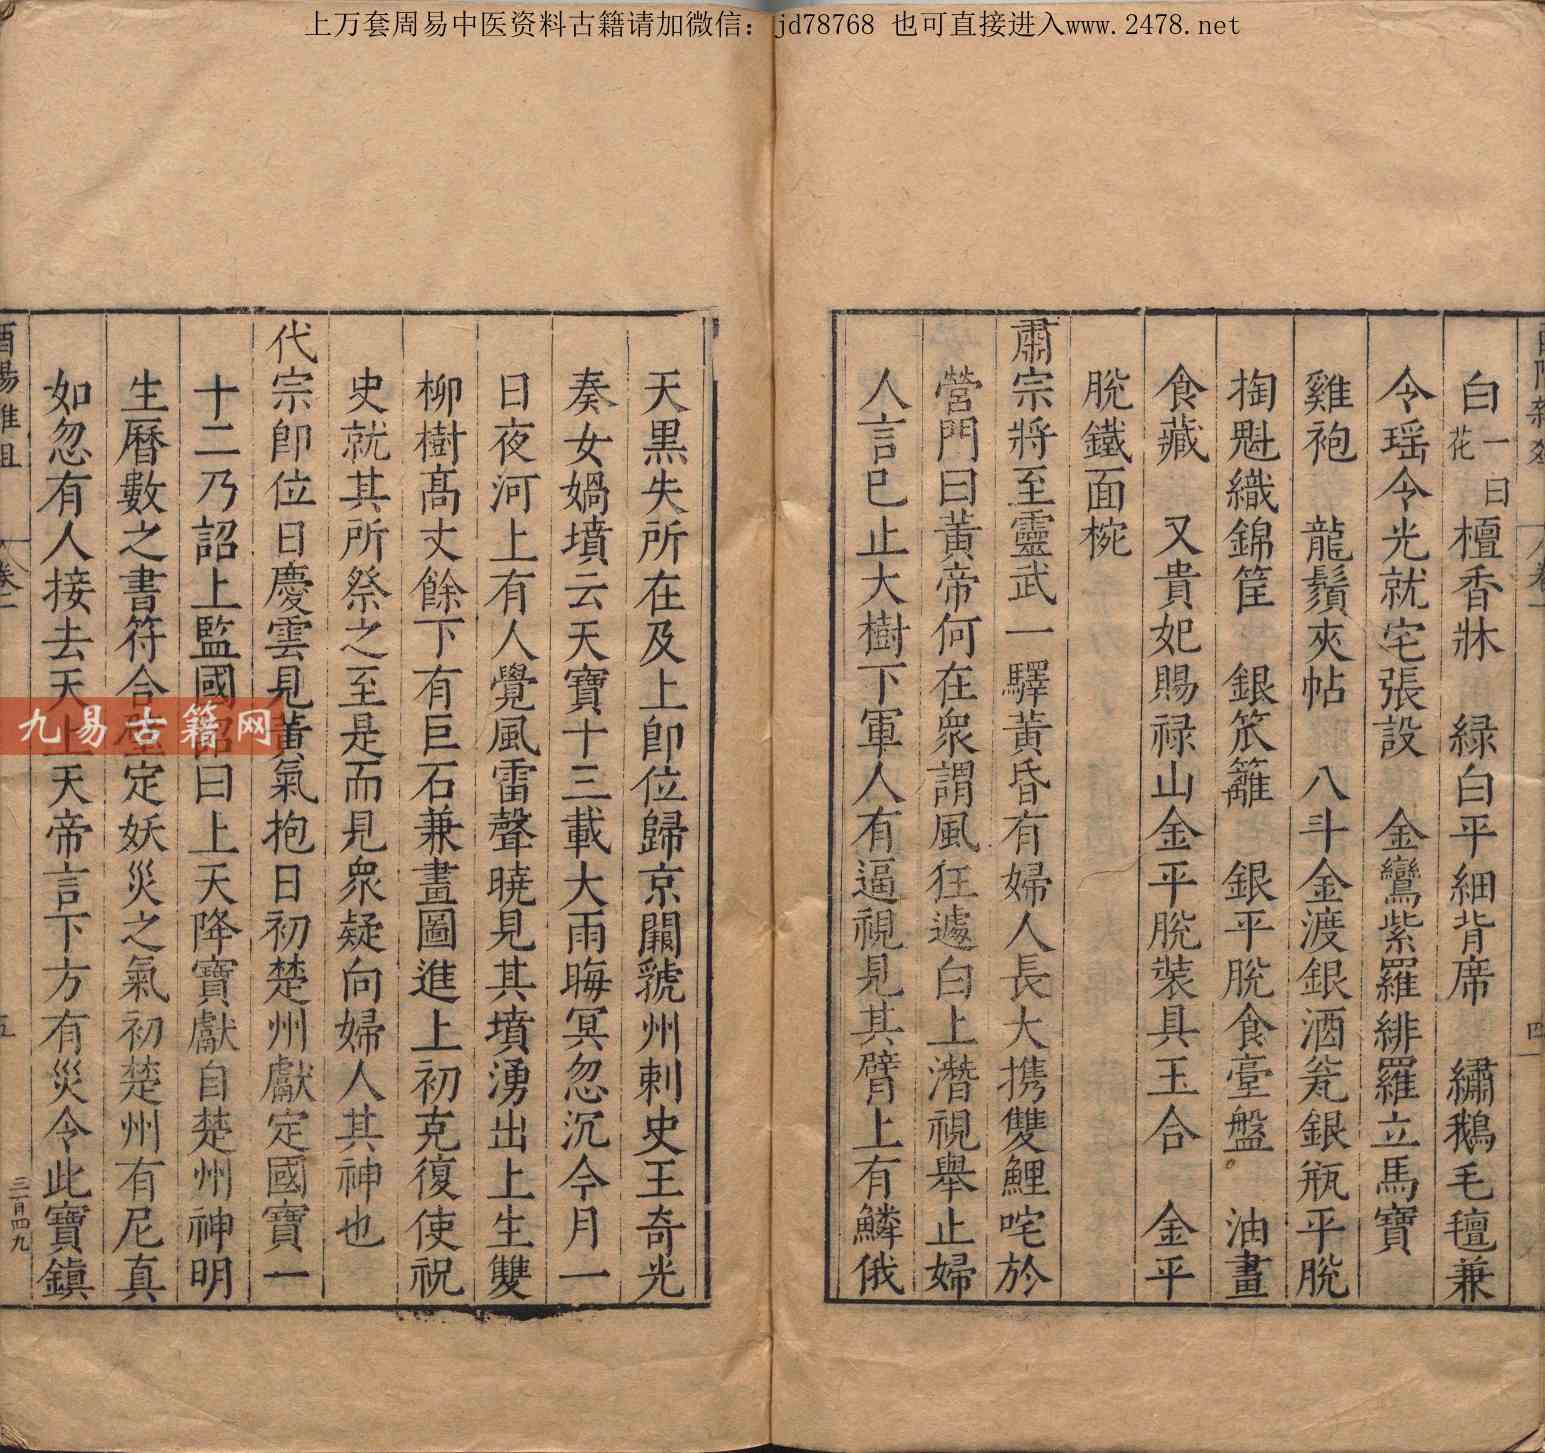 上万套周易中医资料古籍请加微信：jd78768 也可直接进入www.2478.net
白一曰花檀香牀　緑白平細背席　繡鵝毛氊兼
令瑶令光就宅張設　金鸞紫羅緋羅立馬寶
雞袍　龍鬚夾帖　八斗金渡銀酒瓮銀瓶平脫
掏魁織錦筐　銀笊籬　銀平脫食臺盤　油畫
食藏　又貴妃賜禄山金平脫裝具玉合　金平
脫鐵面椀
肅宗將至靈武一驛黃昏有婦人長大携雙鯉咤於
營門曰黃帝何在衆謂風狂遽白上潛視舉止婦
人言已止大樹下軍人有逼視見其臂上有鱗俄
天黒失所在及上卽位歸京闕虢州刺史王奇光
奏女媧墳云天寶十三載大雨晦冥忽沉今月一
日夜河上有人覺風雷聲曉見其墳湧出上生雙
柳樹髙丈餘下有巨石兼畫圖進上初克復使祝
史就其所祭之至是而見衆疑向婦人其神也
代宗卽位日慶雲見黃氣抱日初楚州獻定國寶一
十二乃詔上監國詔曰上天降寶獻自楚州神明
生曆數之書符合璧定妖災之氣初楚州有尼真
如忽有人接去天上天帝言下方有災令此寶鎮
酉陽雜俎　卷一　五
三百四九
九易古籍网